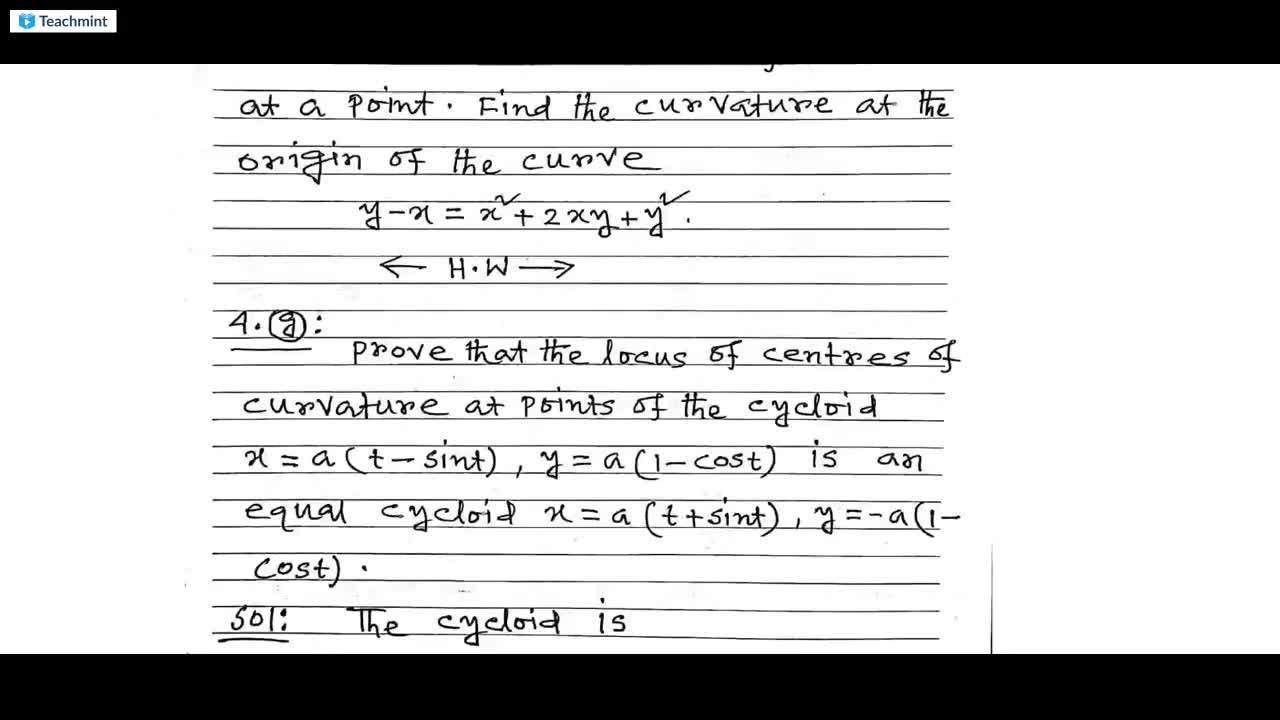 Teachmint
at a point. Find the curvature at the
origin of the curve
y-x = x²+2xy+y².
← H.W →
4.(g):
Prove that the locus of centres of
curvature at points of the cycloid
x=a(t-sint), y=a(1-cost) is an
equal cycloid x=a(t+sint), y=-a(1-
cost).
Sol: The cycloid is